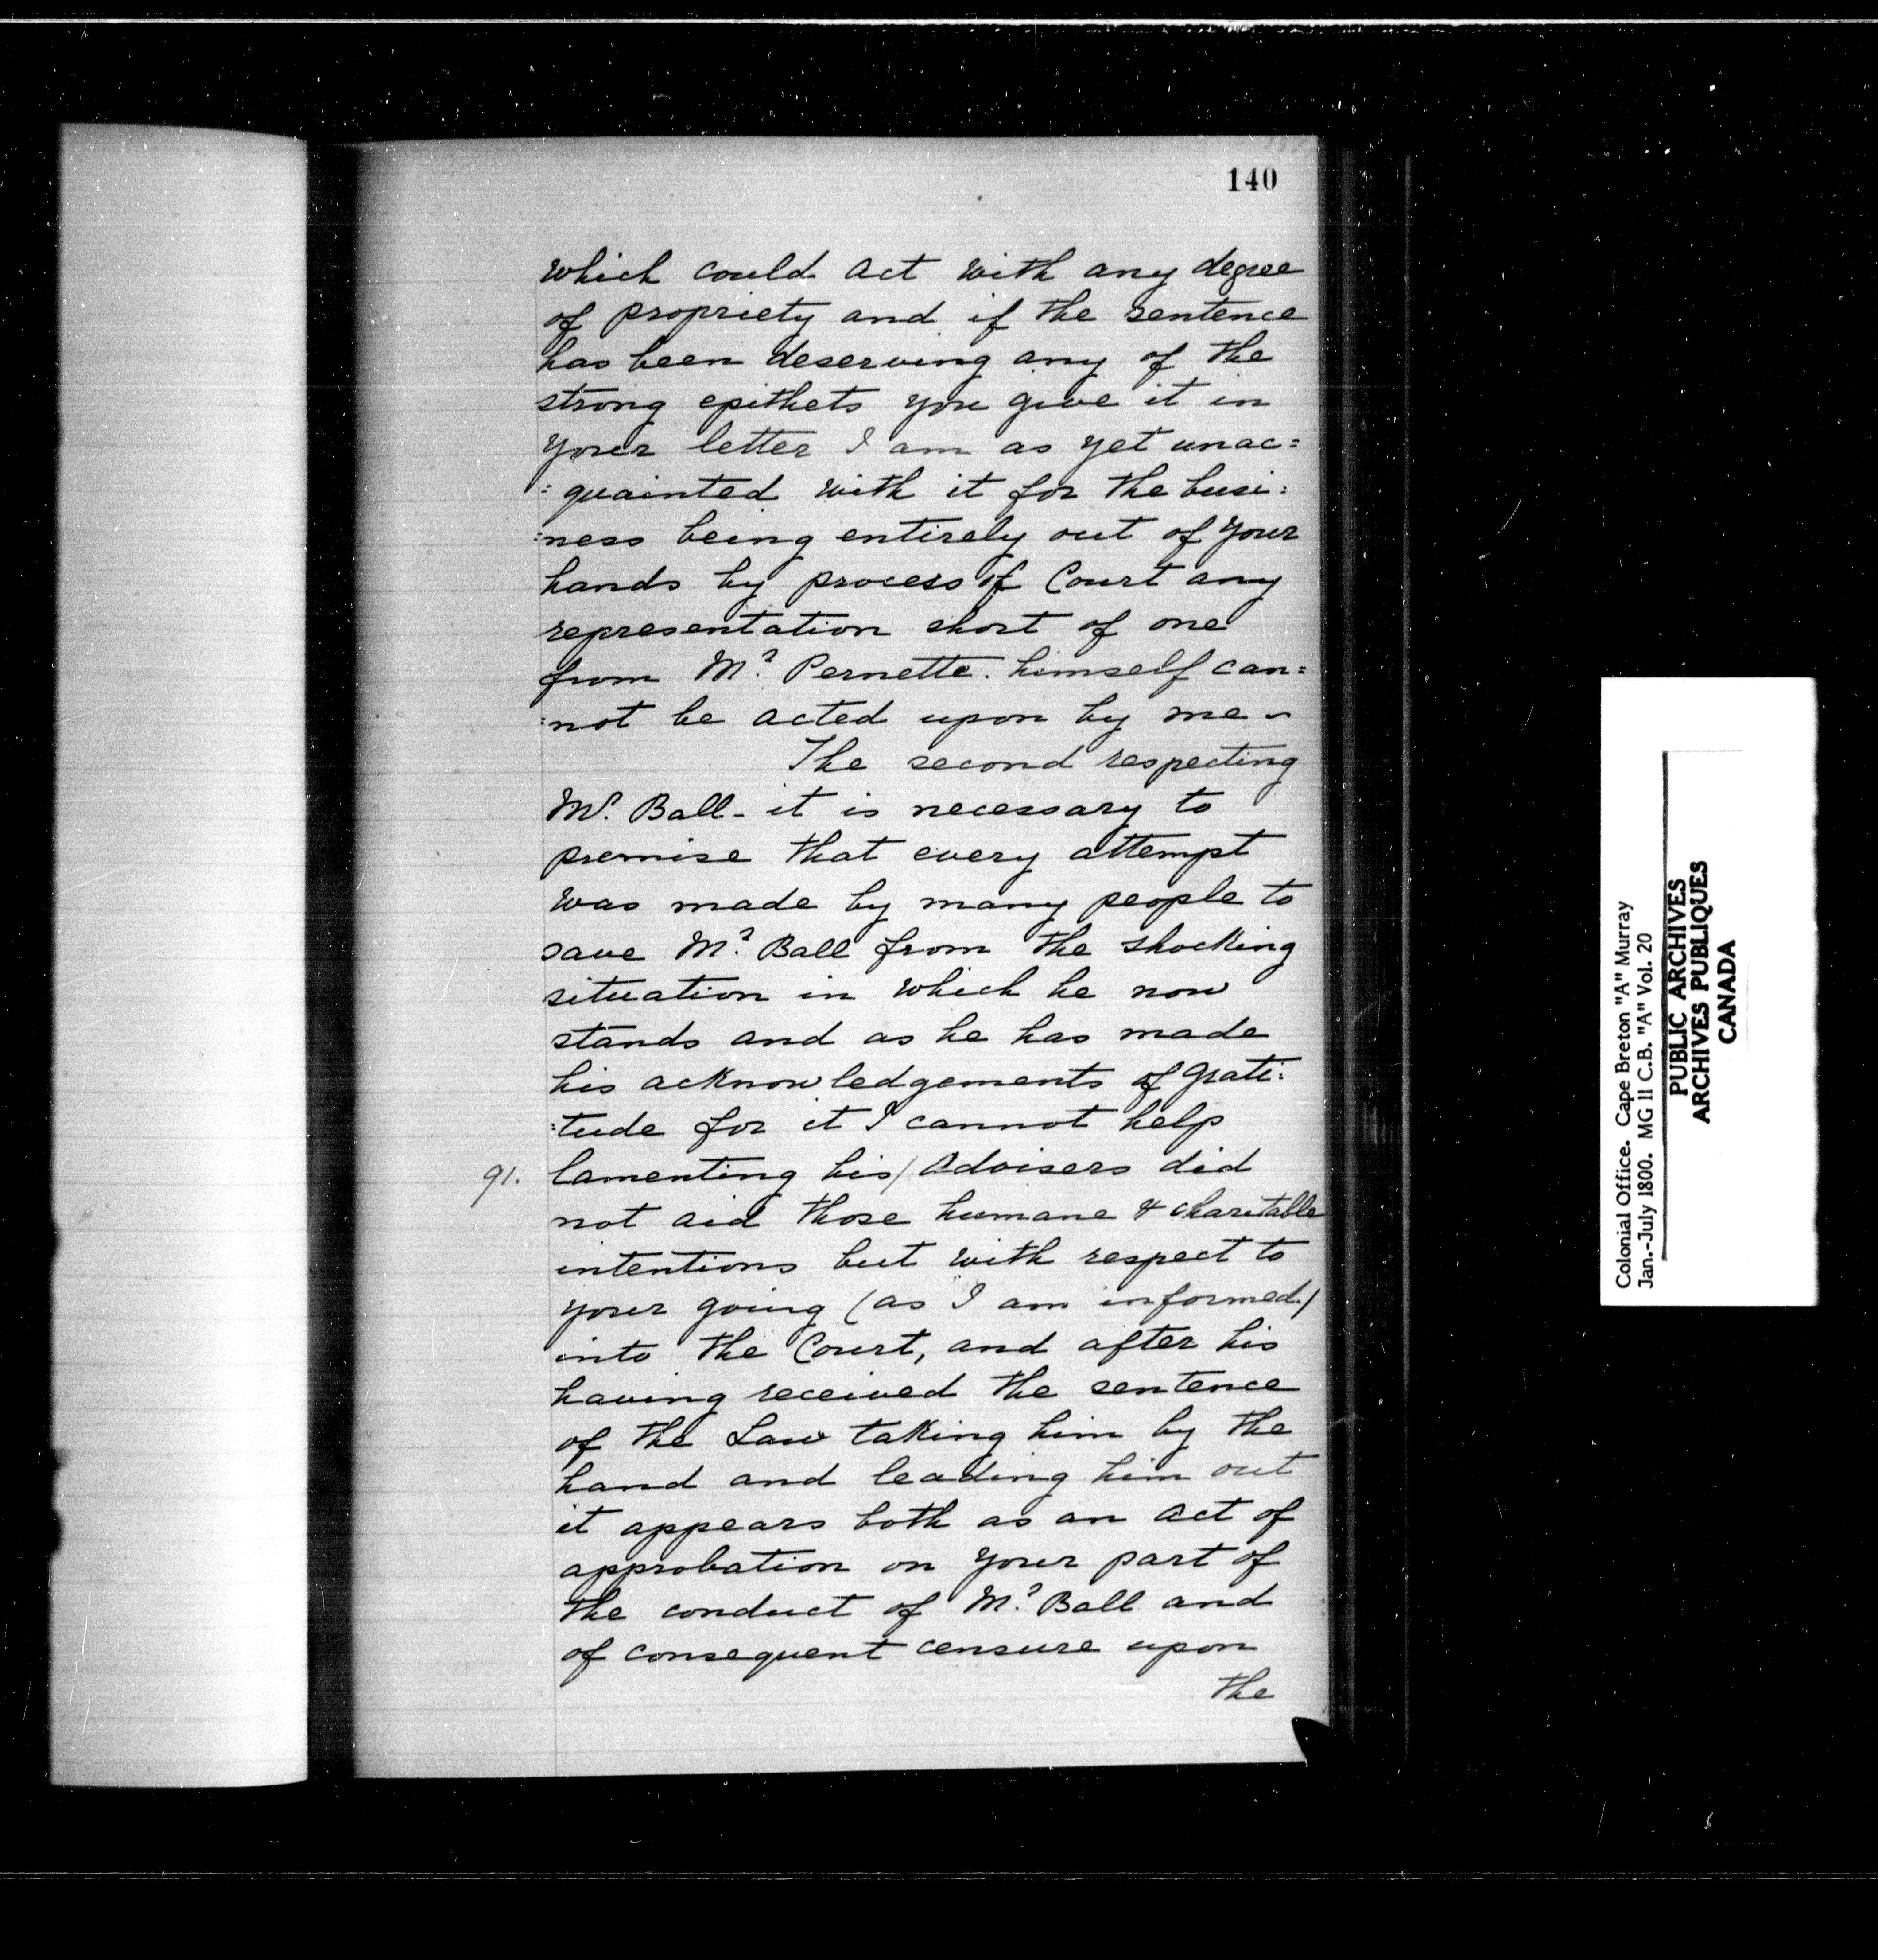 140
which could act with any degree
of propriety and if the sentence
has been deserving any of the
strong epithets you give it in
your letter I am as yet unac=
=quainted with it for the busi:
:ness being entirely out of your
hands by process of Court any
representation short of one
from Mr. Pernette. himself can=
:not be acted upon by me -
The second respecting
Mr. Ball - it is necessary to
premise that every attempt
was made by many people to
save Mr. Ball from the shocking
situation in which he now
stands and as he has made
his acknowledgements of grati:
:tude for it I cannot help
91. lamenting his / advisers did
not aid those humane & charitable
intentions but with respect to
your going (as I am informed)
into the Court, and after his
having received the sentence
of the Law taking him by the
hand and leading him out
it appears both as an act of
approbation on your part of
the conduct of Mr. Ball and
of consequent censure upon
the
Colonial Office. Cape Breton "A" Murray
Jan.-July 1800. MG 11 C.B. "A" Vol. 20
PUBLIC ARCHIVES
ARCHIVES PUBLIQUES
CANADA